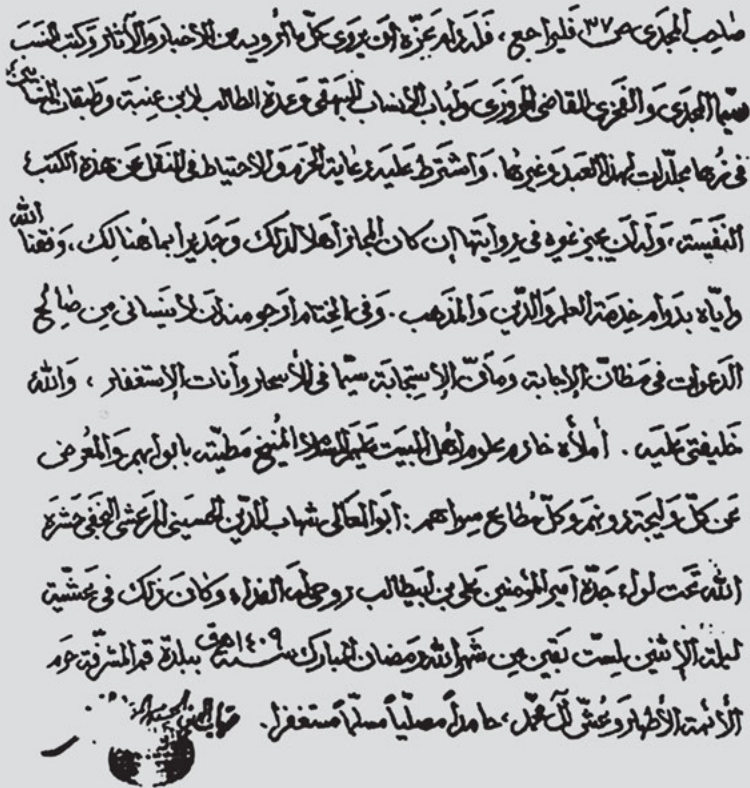 صاحب المجدى ص ٣٧، فليراجع، فله دام عزّه أن يروى كلّ ما أرويه من الأخبار والآثار وكتب النسب
سيّما المجدى والفخرى للقاضى المروزى ولباب الأنساب للبيهقى وعمدة الطالب لابن عنبة وطبقات النسّابين
فى مجلّدات لهذا العبد وغيرها. واشترط عليه رعاية الحزم والاحتياط فى النقل عن هذه الكتب
النفيسة، وله أن يجيز غيره فى روايتها إن كان المجاز أهلا لذلك وجديرا بما هنالك، وفقنا الله
وايّاه بدوام خدمة العلم والدّين والمذهب. وفى الختام أرجو منه أن لا ينسانى من صالح
الدعوات فى مظانّ الإجابة ومآنّ الإستجابة سيّما فى الأسحار وآنات الإستغفار، والله
خليفتى عليه. أملأه خادم علوم أهل البيت عليهم السلام المنيخ مطيّته بابوابهم والمعرض
عن كلّ وليجة دونهم وكلّ مطاع سواهم: أبو المعالى شهاب الدّين الحسينى المرعشى النجفى حشره
الله تحت لواء جدّه أمير المؤمنين على بن أبيطالب روحى له الفداء وكان ذلك فى عشّية
ليلة الإثنين لستّ بقين من شهر الله رمضان المبارك سنة ١٤٠٩ هق ببلدة قم المشرّفة حرم
الأئمة الأطهار وعُشّ آل محمّد، حامداً مصلّياً مسلّماً مستغفرا. شهاب الدين